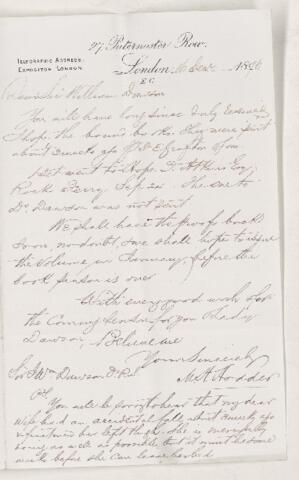 27, Paternoster Row.
TELEGRAPHIC ADDRESS:
EXPOSITOR LONDON.
London, Dec 18
E.C.
Dear Sir William Dawson
You will have long since duly received
I hope the bound books. They were sent
about 3 weeks ago
sent
Rock Ferry The one to
Dr. Dawson was not sent
We shall have the proof back
soon, no doubt, & we shall hope to issue
the volume in January, before the
book season is over
With every good wish for
the Coming Season for you & Lady
Dawson, Believe me
Yours Sincerely
Sir J Wm Dawson
M H Hodder
PS
You will be sorry to hear that my dear
Wife had an accidental fall about weeks ago
& fractured her left thigh. She is mercifully
doing as well as possible, but it must be some
weeks before she can leave her bed